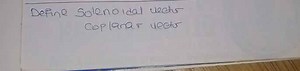 Define Solenoidal vector
Coplanar vector